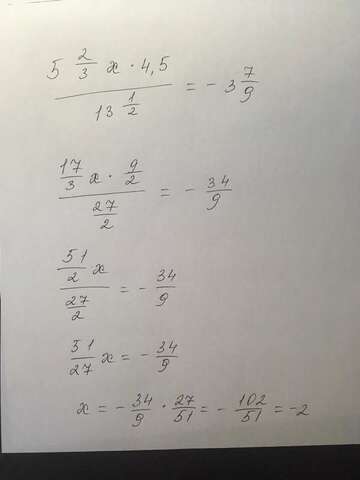 (5 2/3 x · 4,5) / (13 1/2) = - 3 7/9
(17/3 x · 9/2) / (27/2) = - 34/9
(51/2 x) / (27/2) = - 34/9
51/27 x = - 34/9
x = - 34/9 · 27/51 = - 102/51 = -2